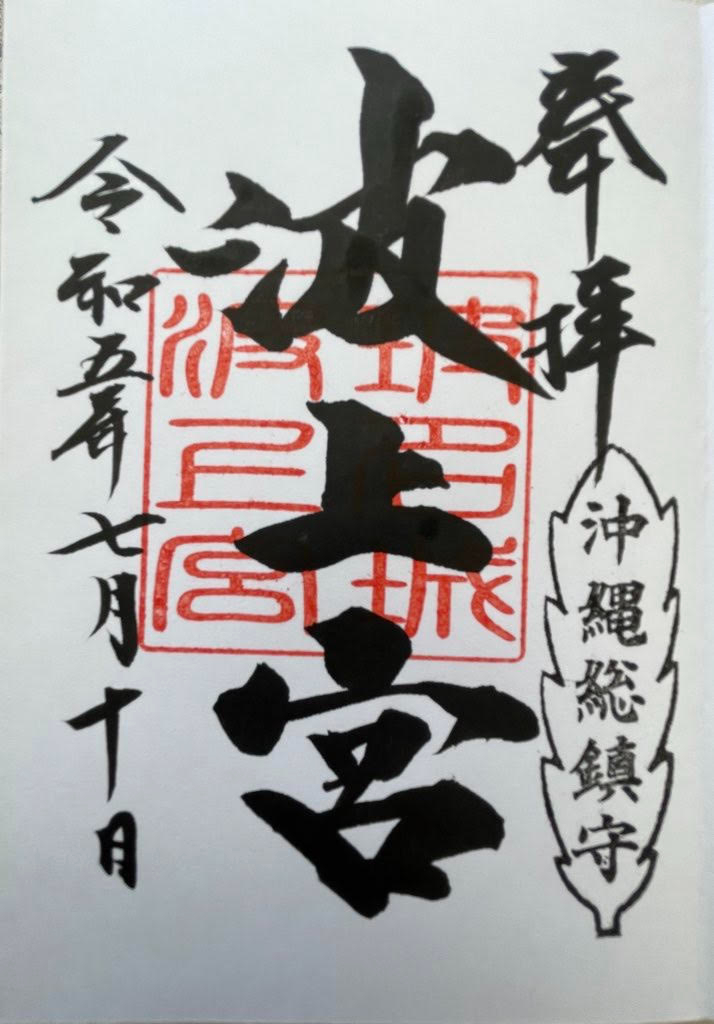 奉拝
沖縄総鎮守
波上宮
坡名城
波上宮
令和五年七月十日